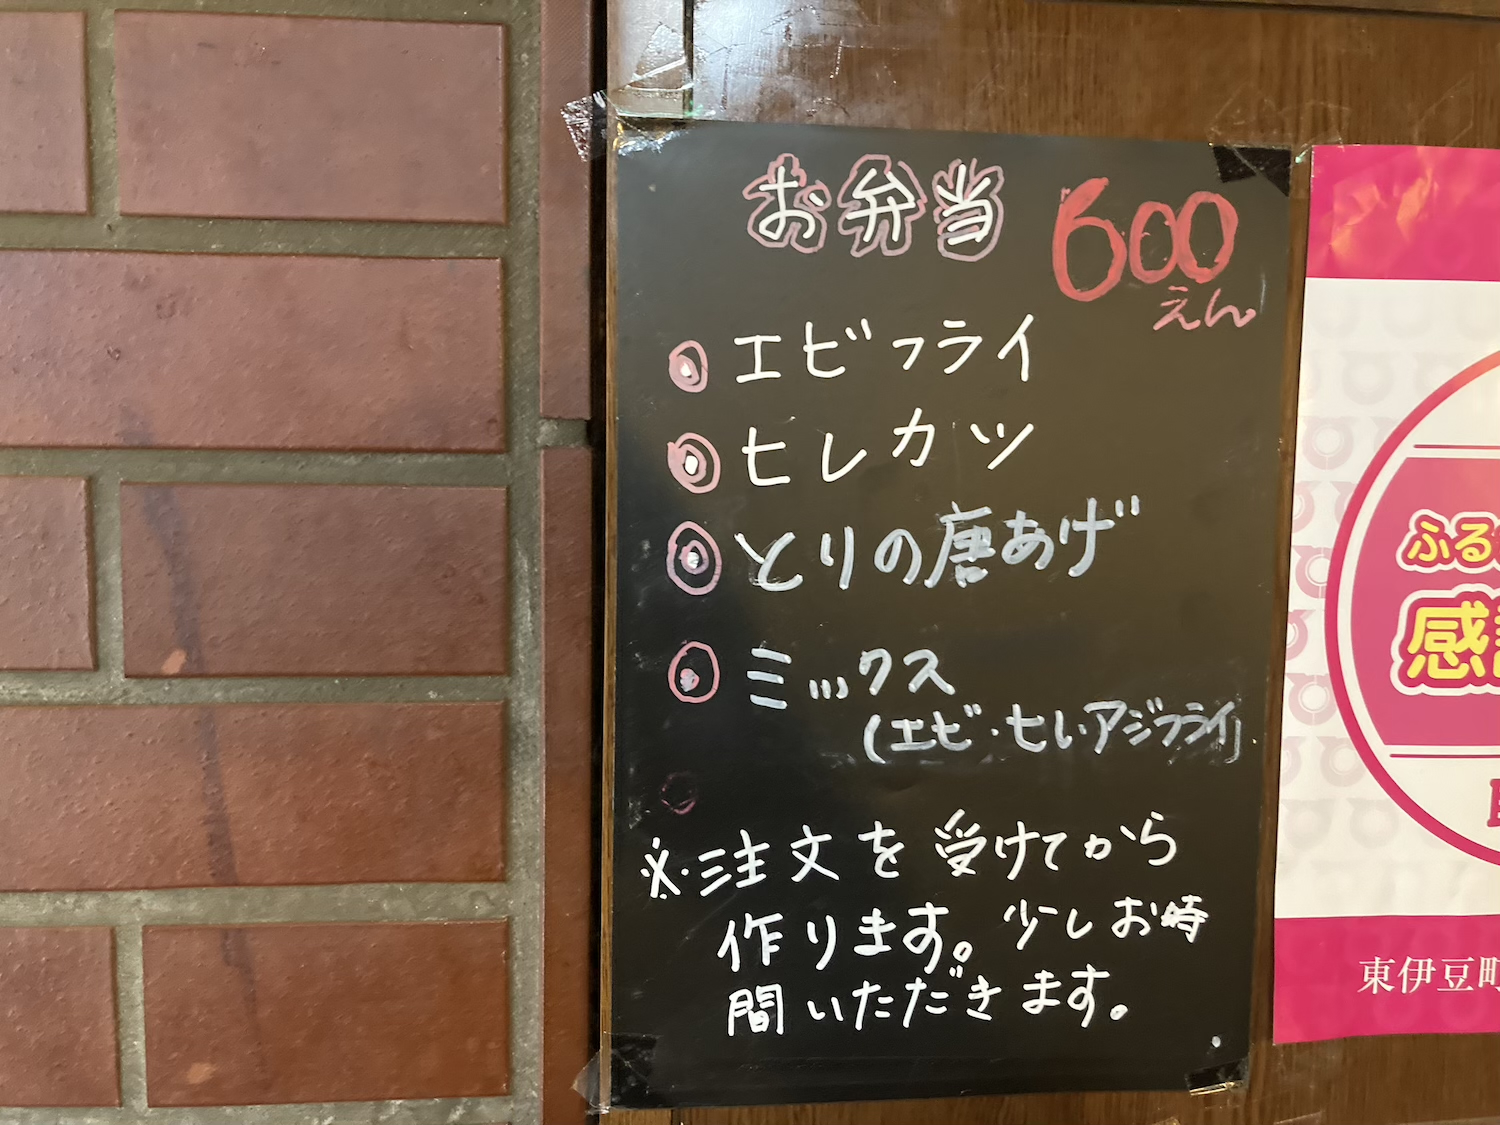 お弁当 600
えん
エビフライ
ヒレカツ
とりの唐あげ
ミックス
(エビ・ヒレ・アジフライ)
※注文を受けてから
作ります。少しお時
間いただきます。
ふる
感
東伊豆町